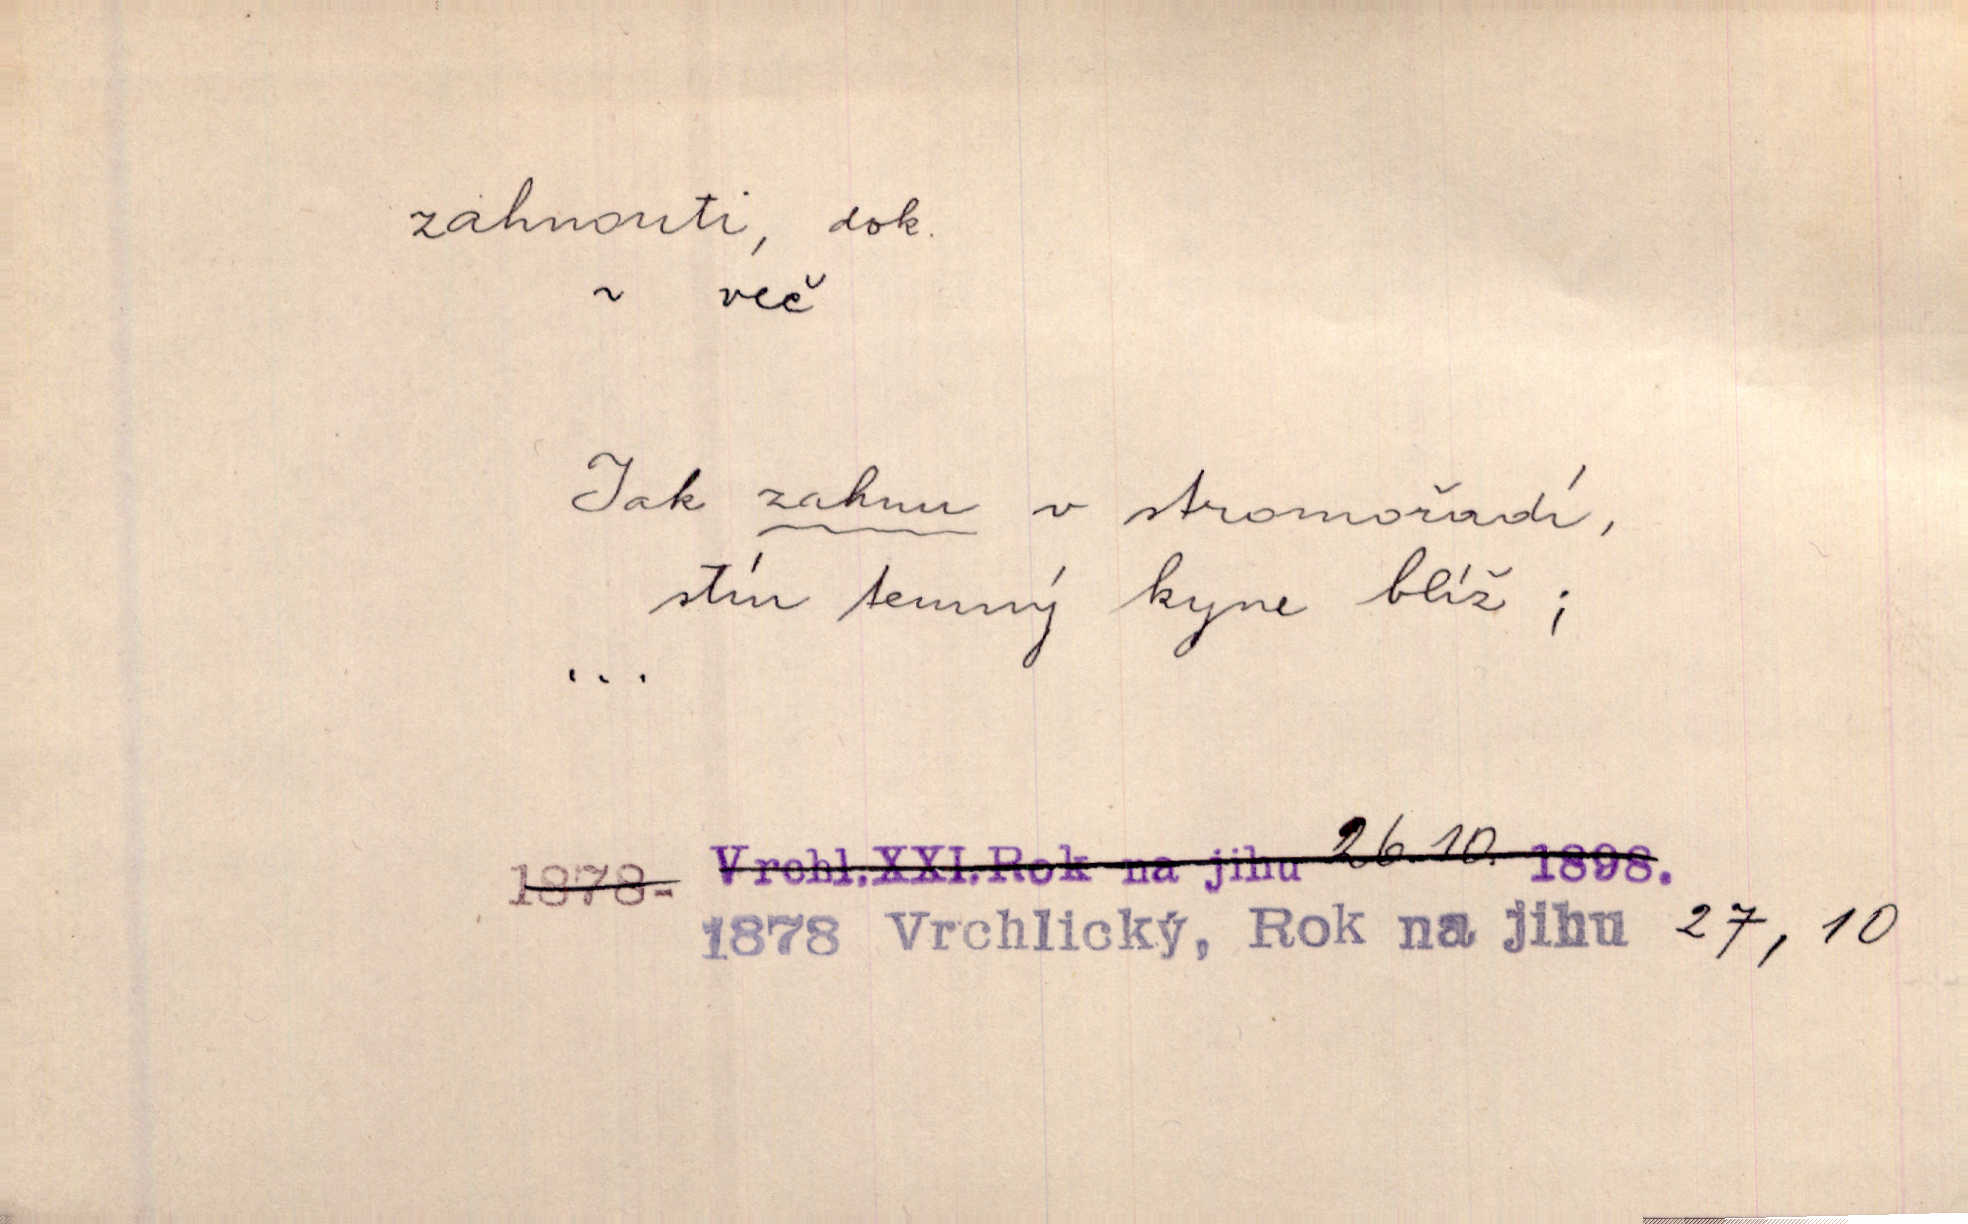 zahnouti, dok.
~ več
Jak zahnu v stromořadí,
stín temný kyne blíž ;
...
1878- Vrchl.XXI.Rok na jihu 26.10. 1898.
1878 Vrchlický, Rok na jihu 27, 10